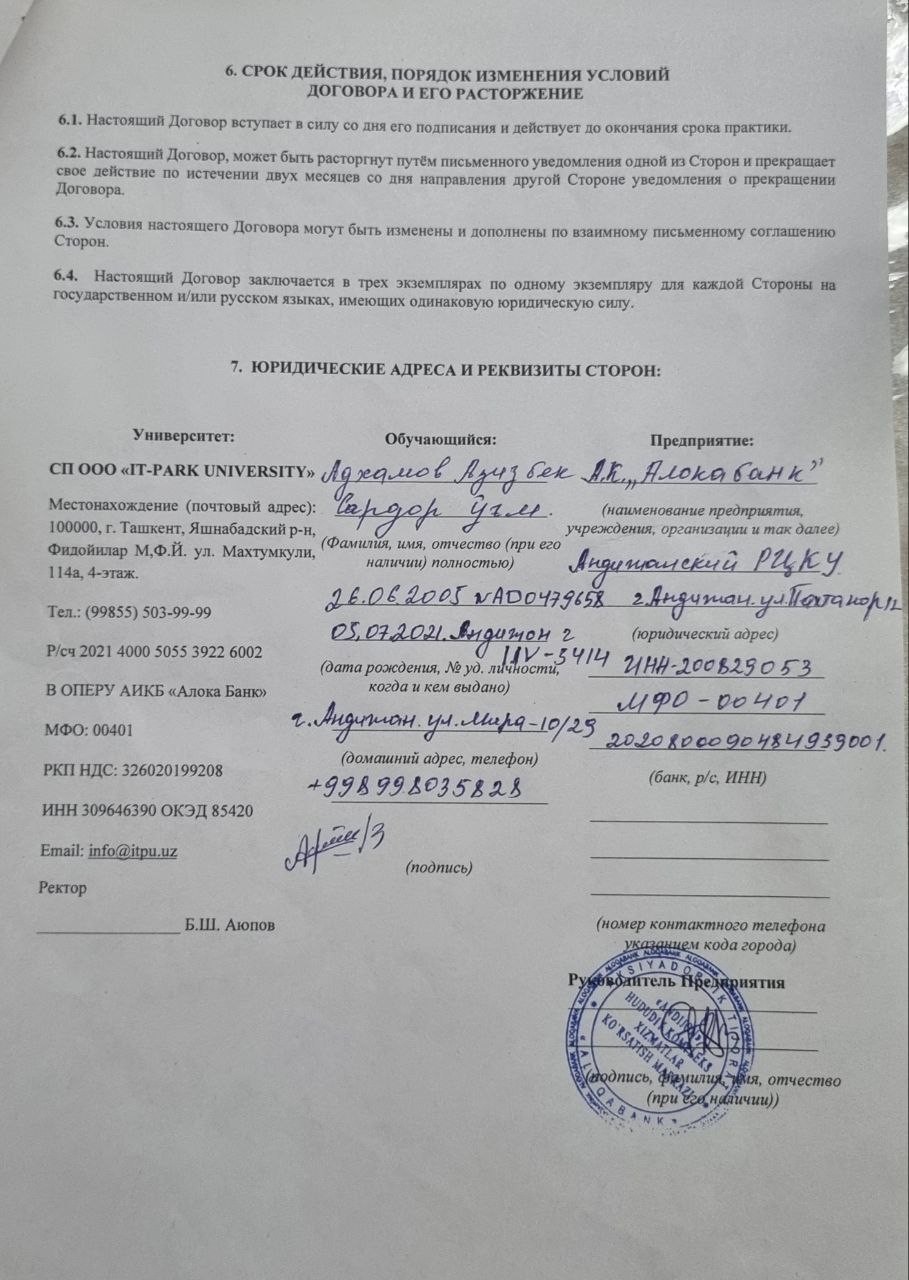 6. СРОК ДЕЙСТВИЯ, ПОРЯДОК ИЗМЕНЕНИЯ УСЛОВИЙ
ДОГОВОРА И ЕГО РАСТОРЖЕНИЕ
6.1. Настоящий Договор вступает в силу со дня его подписания и действует до окончания срока практики.
6.2. Настоящий Договор, может быть расторгнут путём письменного уведомления одной из Сторон и прекращает
свое действие по истечении двух месяцев со дня направления другой Стороне уведомления о прекращении
Договора.
6.3. Условия настоящего Договора могут быть изменены и дополнены по взаимному письменному соглашению
Сторон.
6.4. Настоящий Договор заключается в трех экземплярах по одному экземпляру для каждой Стороны на
государственном и/или русском языках, имеющих одинаковую юридическую силу.
7. ЮРИДИЧЕСКИЕ АДРЕСА И РЕКВИЗИТЫ СТОРОН:
Университет:
СП ООО «IT-PARK UNIVERSITY»
Местонахождение (почтовый адрес):
100000, г. Ташкент, Яшнабадский р-н,
Фидойилар М,Ф.Й. ул. Махтумкули,
114а, 4-этаж.
Тел.: (99855) 503-99-99
Р/сч 2021 4000 5055 3922 6002
В ОПЕРУ АИКБ «Алока Банк»
МФО: 00401
РКП НДС: 326020199208
ИНН 309646390 ОКЭД 85420
Email: info@itpu.uz
Ректор
Б.Ш. Аюпов
Обучающийся:
Адхамов Азизбек
Сардор ўғли.
(Фамилия, имя, отчество (при его
наличии) полностью)
26.06.2005 №AD0479658
05.07.2021. Андижон г
IIV-3414
(дата рождения, № уд. личности,
когда и кем выдано)
г. Андижан. ул. Мира-10/29
(домашний адрес, телефон)
+998998035828
(подпись)
Предприятие:
А.К. „Алокабанк”
(наименование предприятия,
учреждения, организации и так далее)
Андижанский РЦКУ
г. Андижан. ул.
(юридический адрес)
ИНН-200829053
МФО-00401
2020800090484939001.
(банк, р/с, ИНН)
(номер контактного телефона
указанием кода города)
Руководитель Предприятия
(подпись, фамилия, имя, отчество
(при его наличии))
AKSIYADORLIK TIJORAT
«ALOQABANK»
«ANDIJON
HUDUDIY KOMPLEKS
XIZMATLAR
KO'RSATISH MARKAZI»